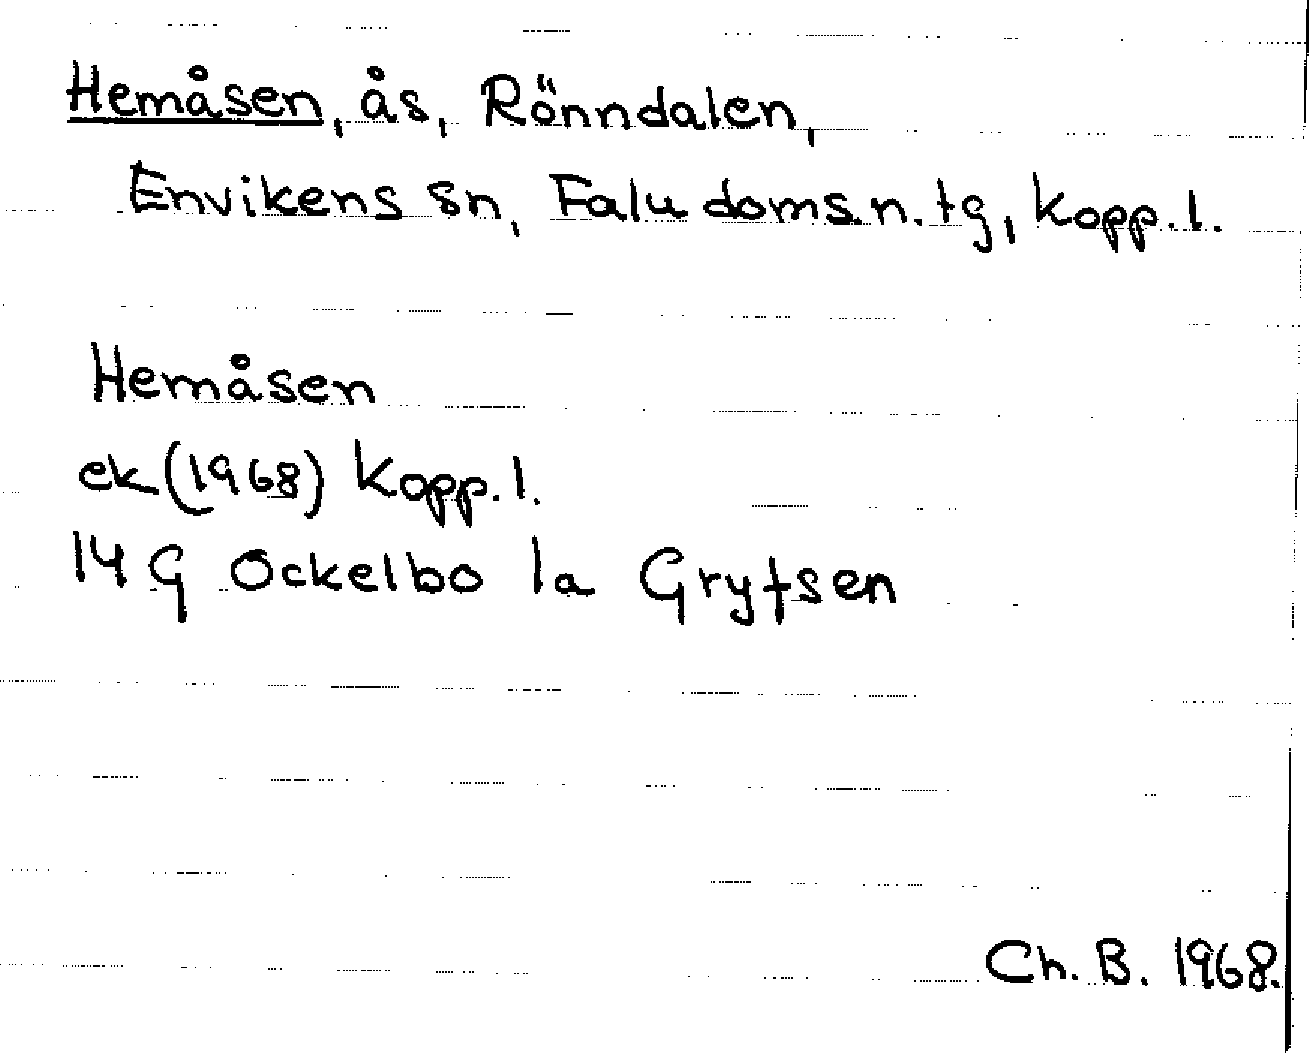 Hemåsen, ås, Rönndalen,
Envikens sn, Falu doms.n. tg, Kopp. l.
Hemåsen
ek (1968) Kopp. l.
14 G Ockelbo 1a Grytsen
Ch. B. 1968.